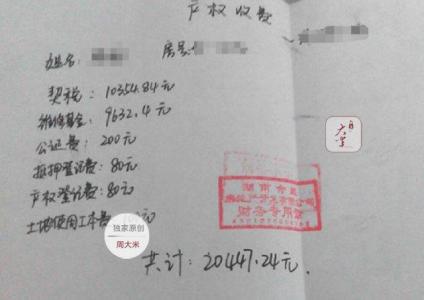 产权收费
姓名:
房号:
契税: 10354.84元
维修基金: 9632.4元
公证费: 200元
抵押登记费: 80元
产权登记费: 80元
土地使用工本费 元
独家原创
周大米
湖南
有限公司
财务专用章
共计: 20447.24元.